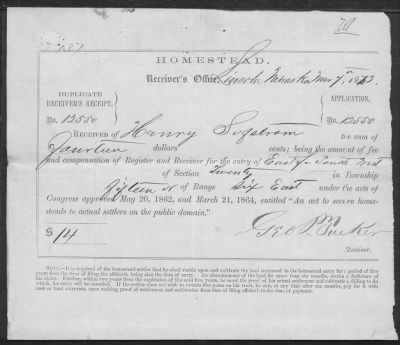 HOMESTEAD.
Receiver's Office, Lincoln Nebraska Mar 7th 1873.
DUPLICATE
RECEIVER'S RECEIPT,
No. 12550
APPLICATION,
No. 12550
RECEIVED OF Henry Sofstrom the sum of
Fourteen dollars cents; being the amount of fee
and compensation of Register and Receiver for the entry of East ½ South West
of Section Twenty in Township
fifteen N of Range Six East under the acts of
Congress approved May 20, 1862, and March 21, 1864, entitled "An act to secure home-
steads to actual settlers on the public domain."
$ 14
Geo P Tucker
Receiver.
NOTE.—It is required of the homestead settler that he shall reside upon and cultivate the land embraced in his homestead entry for a period of five
years from the time of filing the affidavit, being also the date of entry. An abandonment of the land for more than six months, works a forfeiture of
the claim. Further, within two years from the expiration of the said five years, he must file proof of his actual settlement and cultivation, failing to do
which, his entry will be cancelled. If the settler does not wish to remain five years on his tract, he can, at any time after six months, pay for it with
cash or land warrants, upon making proof of settlement and cultivation from date of filing affidavit to the time of payment.